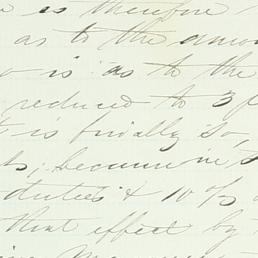 is therefore
as to the amou
o is as to the
reduced to 3 p
is finally so,
ts; because in s
duties & 10 %
that effect by t